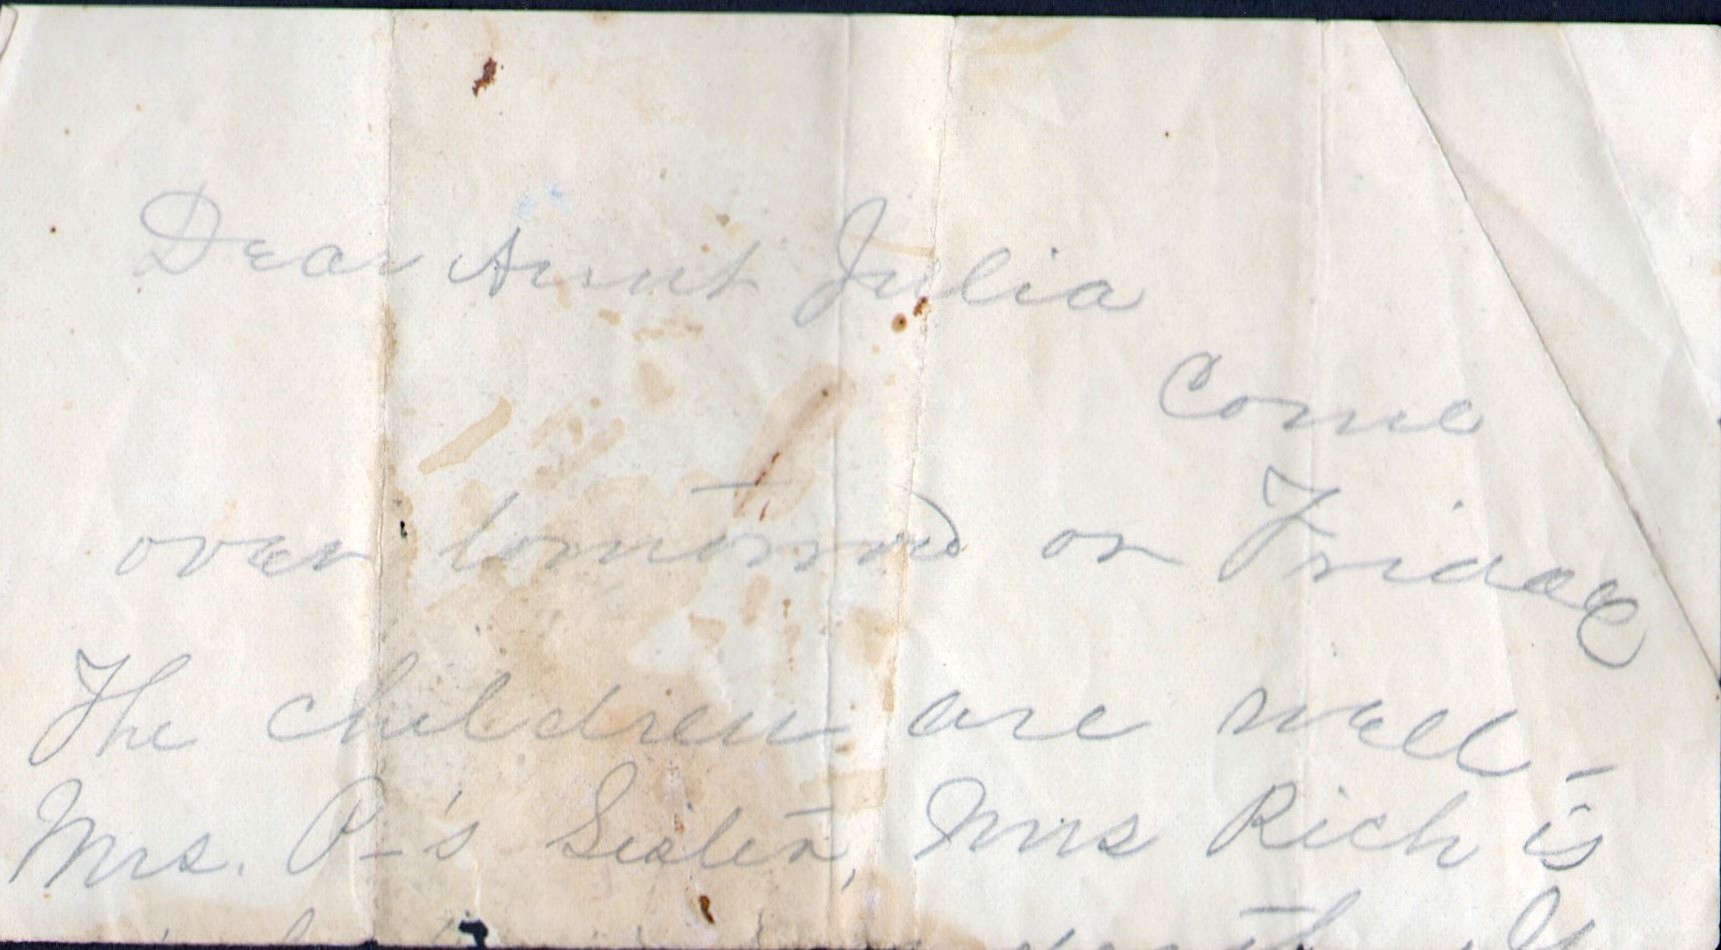 Dear Aunt Julia
Come
over tomorrow or Friday
The children are well -
Mrs. P-'s Sister, Mrs Rich is